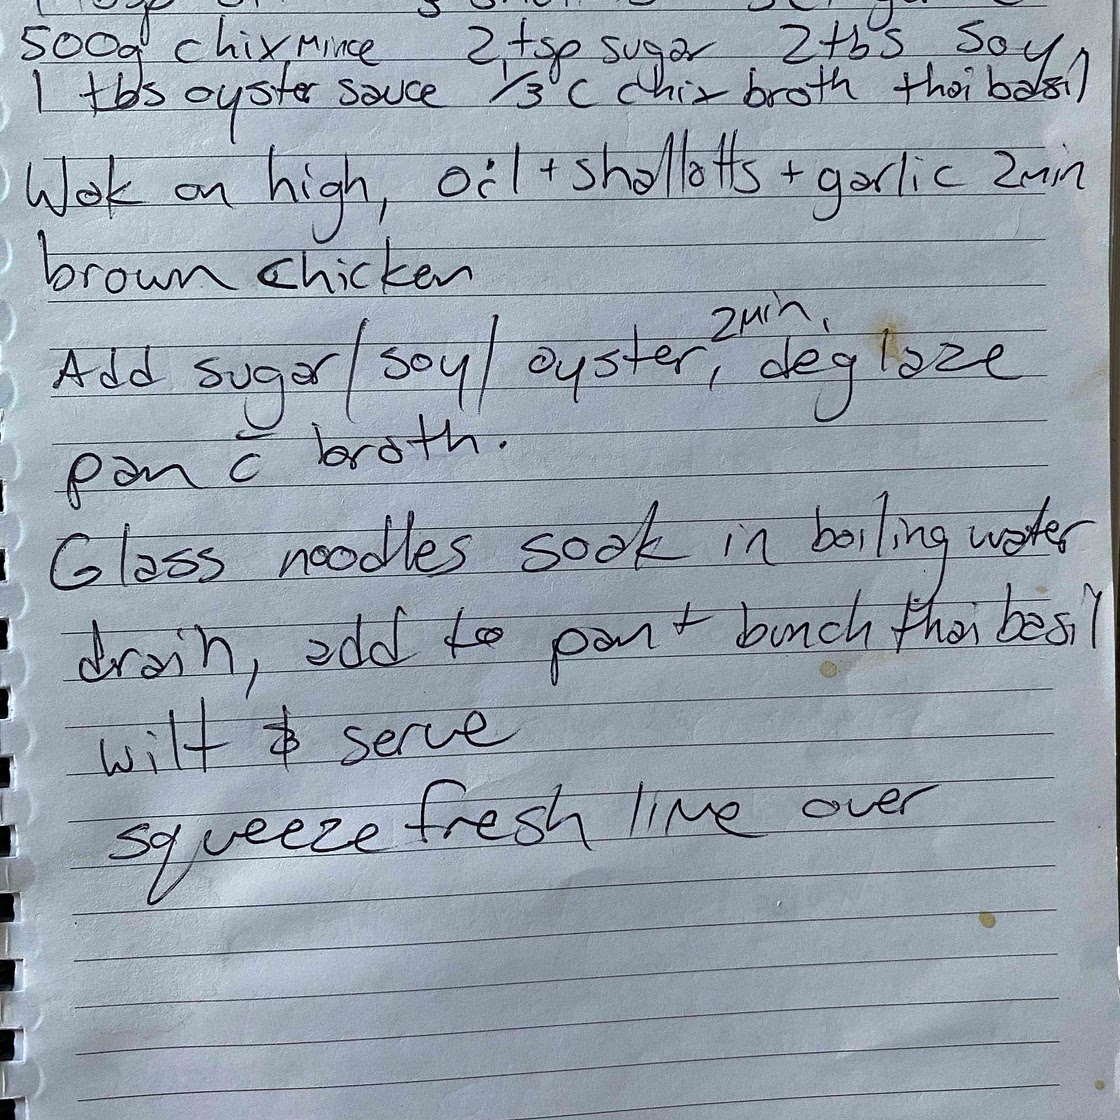 500g chix mince 2 tsp sugar 2 tbs soy
1 tbs oyster sauce 1/3 c chix broth thai basil
Wok on high, oil + shallotts + garlic 2min
brown chicken
Add sugar/soy/oyster, 2min, deglaze
pan c̄ broth.
Glass noodles soak in boiling water
drain, add to pan + bunch thai basil
wilt & serve
squeeze fresh lime over